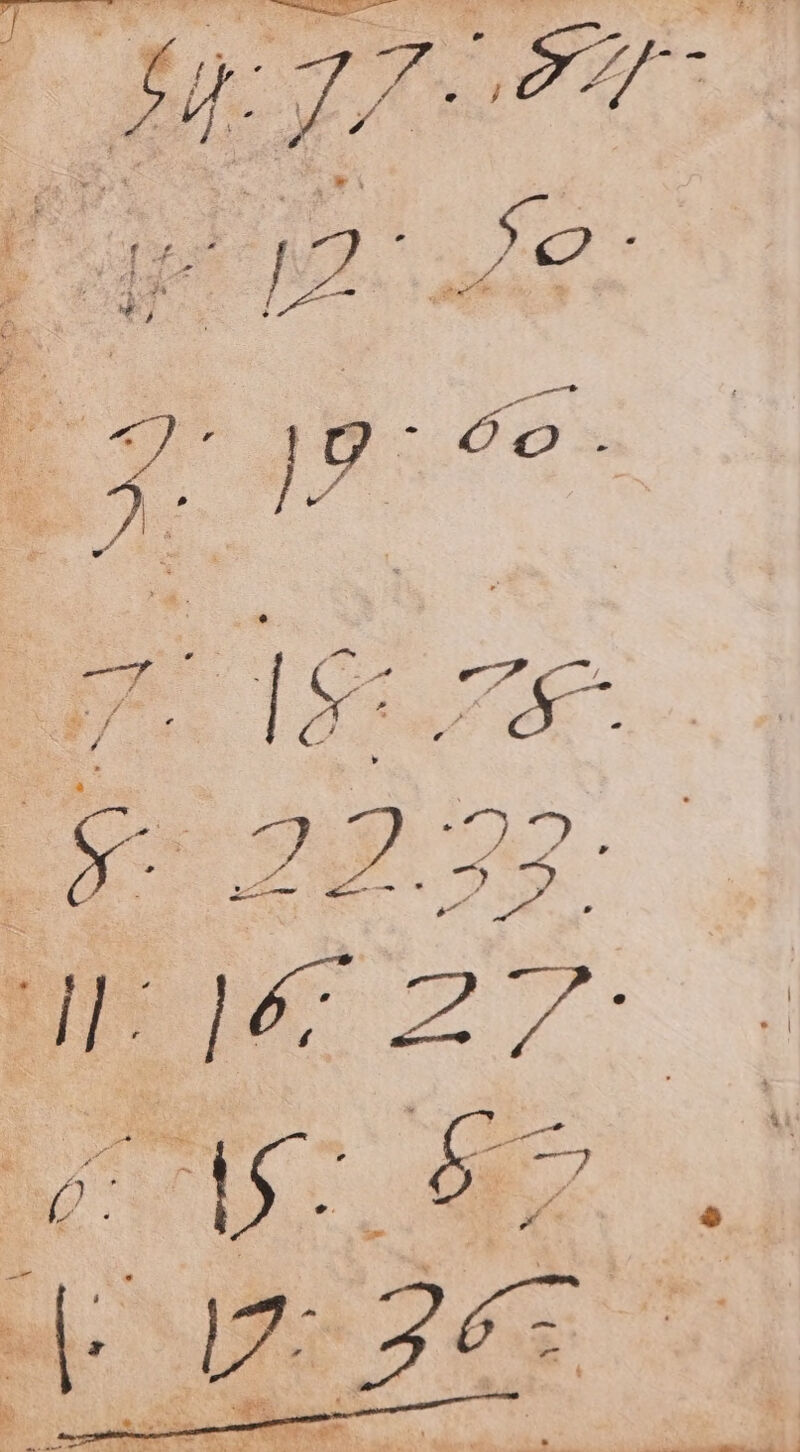 54: 77: 84-
12: 50.
3: 19: 60.
7: 18: 78.
8: 22:33:
11: 16: 27.
6: 15: 87
1: 17: 36=